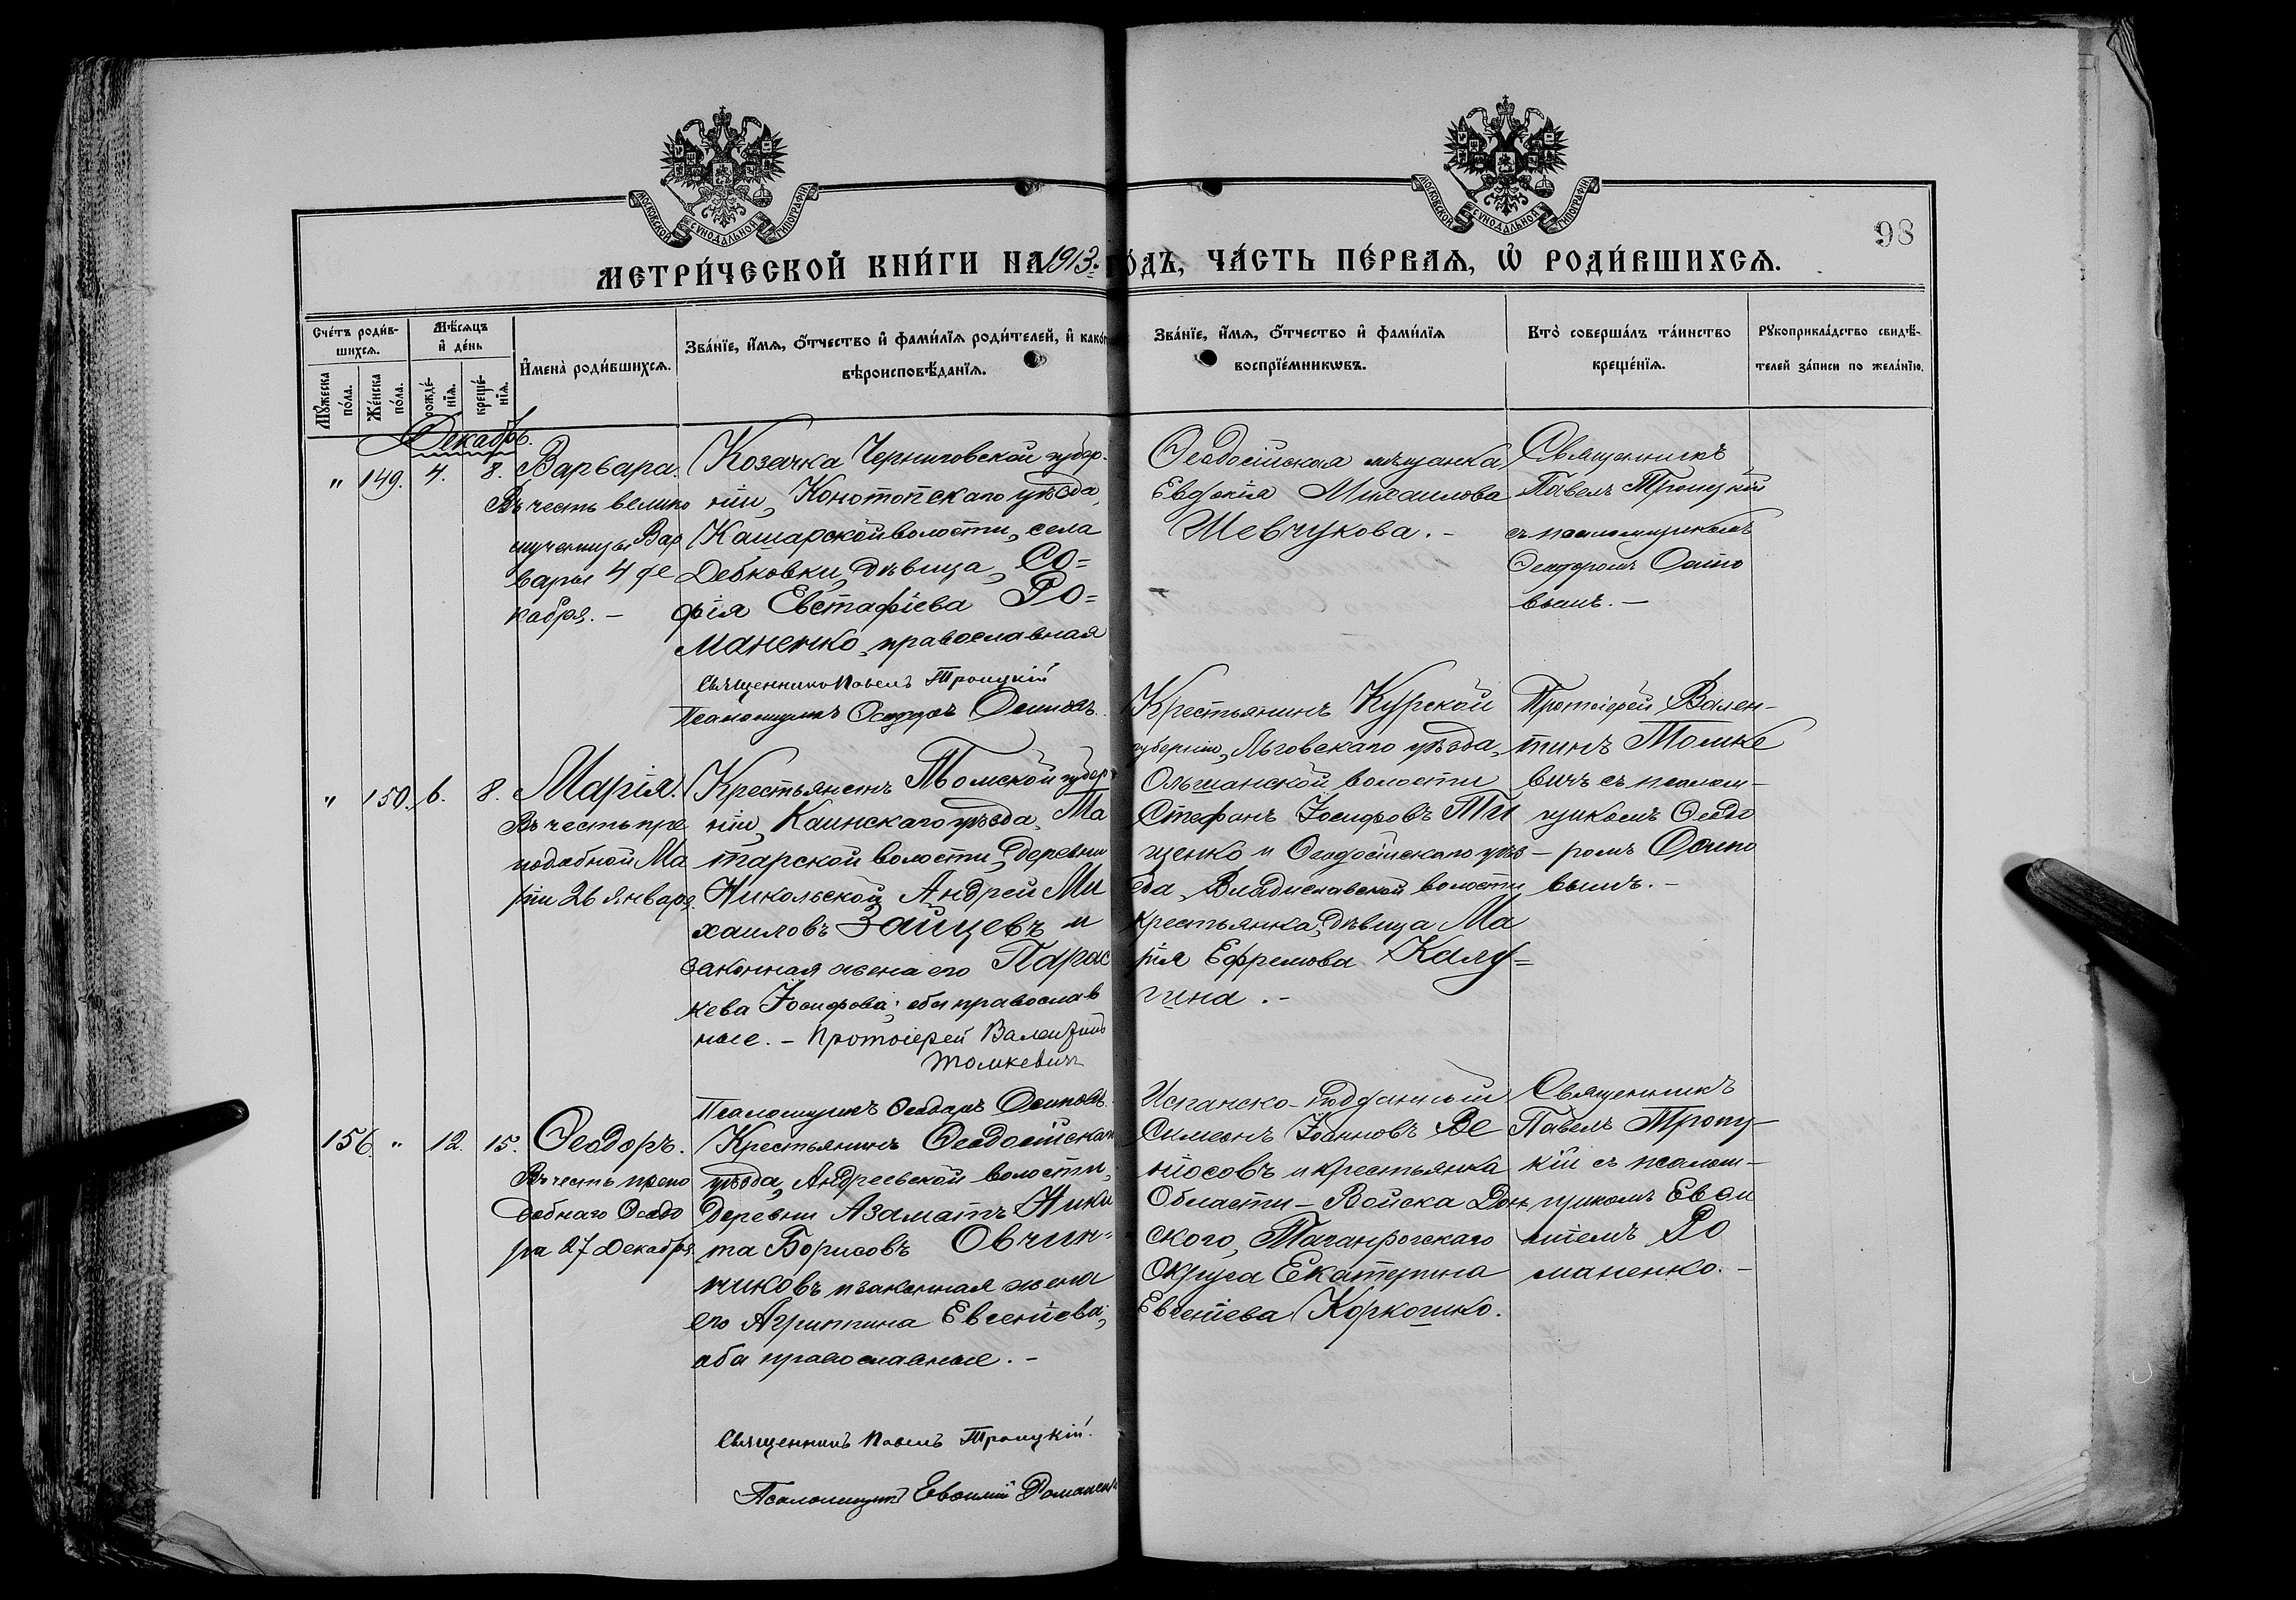 МОСКОВСКОЙ СѴНОДАЛЬНОЙ ТИПОГРАФІИ
МОСКОВСКОЙ СѴНОДАЛЬНОЙ ТИПОГРАФІИ
98
МЕТРИ́ЧЕСКОЙ КНИ́ГИ НА 1913 ГО́ДЪ, ЧА́СТЬ ПЕ́РВАѦ, Ѡ҆ РОДИ́ВШИХСѦ.
Сче́тъ роди́в-
шихсѧ.
Мꙋ́жеска по́ла.
Же́нска по́ла.
Мѣ́сѧцъ
и҆ де́нь
рожде́-
нїѧ.
креще́-
нїѧ.
И҆мена̀ роди́вшихсѧ.
Зва́нїе, и҆́мѧ, ѻ҆́тчество и҆ фами́лїѧ роди́телей, и҆ како́г
вѣроисповѣ́данїѧ.
Зва́нїе, и҆́мѧ, ѻ҆́тчество и҆ фами́лїѧ
воспрїе́мникѡвъ.
Кто̀ соверша́лъ та́инство
креще́нїѧ.
Рꙋкоприкла́дство свидѣ́-
телей за́писи по жела́нїю.
Декабрь.
" 149. 4. 8. Варвара.
Въ честь велико
мученицы Вар
вары 4 де
кабря. –
Козачка Черниговской губер-
ніи, Конотопскаго уѣзда,
Кашарской волости, села
Дебковки, дѣвица, Со=
фія Евстафіева Ро=
маненко, православная
Священникъ Павелъ Троицкій
Псаломщикъ Ѳеодоръ Осиповъ.
Ѳеодосійская мѣщанка
Евдокія Михаилова
Шевчукова. –
Священникъ
Павелъ Троицкій
съ псаломщикомъ
Ѳеодоромъ Осипо
вымъ. –
" 150. 6. 8. Марія.
Въ честь пре
подобной Ма
ріи 26 Января.
Крестьянинъ Томской губер
ніи, Каинскаго уѣзда, Ма
тарской волости, деревни
Никольской Андрей Ми
хаиловъ Зайцевъ и
законная жена его Парас
кева Іосифова; оба православ
ные. – Протоіерей Валентинъ
Томкевичъ
Псаломщикъ Ѳеодоръ Осиповъ.
Крестьянинъ Курской
губерніи, Льговскаго уѣзда,
Ольшанской волости
Стефанъ Іосифовъ Ти
щенко и Ѳеодосійскаго уѣз
да, Владиславской волости
крестьянка, дѣвица Ма
рія Ефремова Калу=
гина. –
Протоіерей Вален-
тинъ Томке
вичъ съ псалом-
щикомъ Ѳеодо
– ромъ Осипо
вымъ. –
156 " 12. 15. Ѳеодоръ.
Въ честь препо
добнаго Ѳеодо
ра 27 Декабря.
Крестьянинъ Ѳеодосійскаго
уѣзда, Андреевской волости,
деревни Азаматъ Ники
та Борисовъ Овчин=
никовъ и законная жена
его Агриппина Евсеніева;
оба православные. –
Священникъ Павелъ Троицкій.
Псаломщикъ Евѳимій Романенко
Испанско-подданный
Симеонъ Іоанновъ Ве
ніосовъ и крестьянка
Области – Войска Дон
ского, Таганрогскаго
Округа Екатерина
Евгеніева Коркошко.
Священникъ
Павелъ Троиц-
кій съ псалом-
щикомъ Евѳи
міемъ Ро
маненко. –